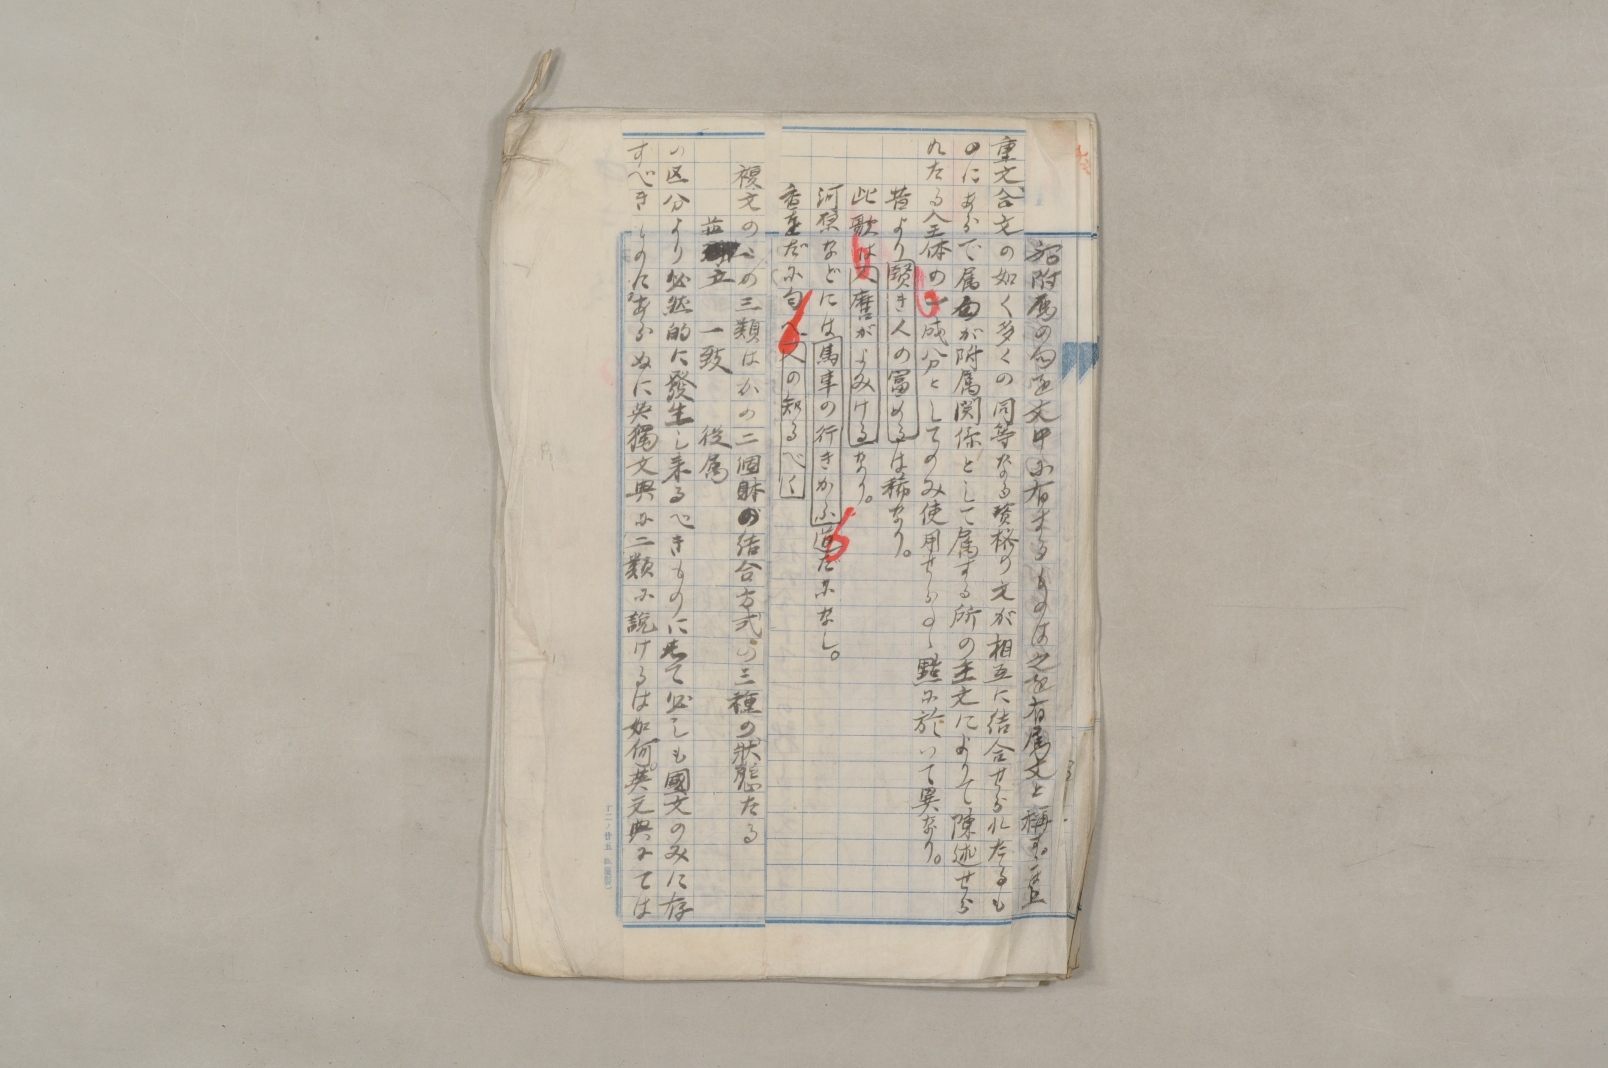 附属の句を文中に有するものは之を有属文と称す。
重文、合文の如く多くの同等なる資格の文が相互に結合せられたるも
のにあらで属句が附属関係として属する所の主文によりて陳述せら
れたる全体の一成分としてのみ使用せらるゝ點に於いて異なり。
昔より賢き人の富めるは稀なり。
此歌は人麿がよみけるなり。
河原などには馬車の行きかふ道だになし。
香をだに匂へ人の知るべく
複文のこの三類はかの二個体の結合方式の三種の状態たる
並立 一致 従属
の区分より必然的に發生し来るべきものにして必しも國文のみに存
すべきものにあらぬに英獨文典に二類に説けるは如何。英文典にては